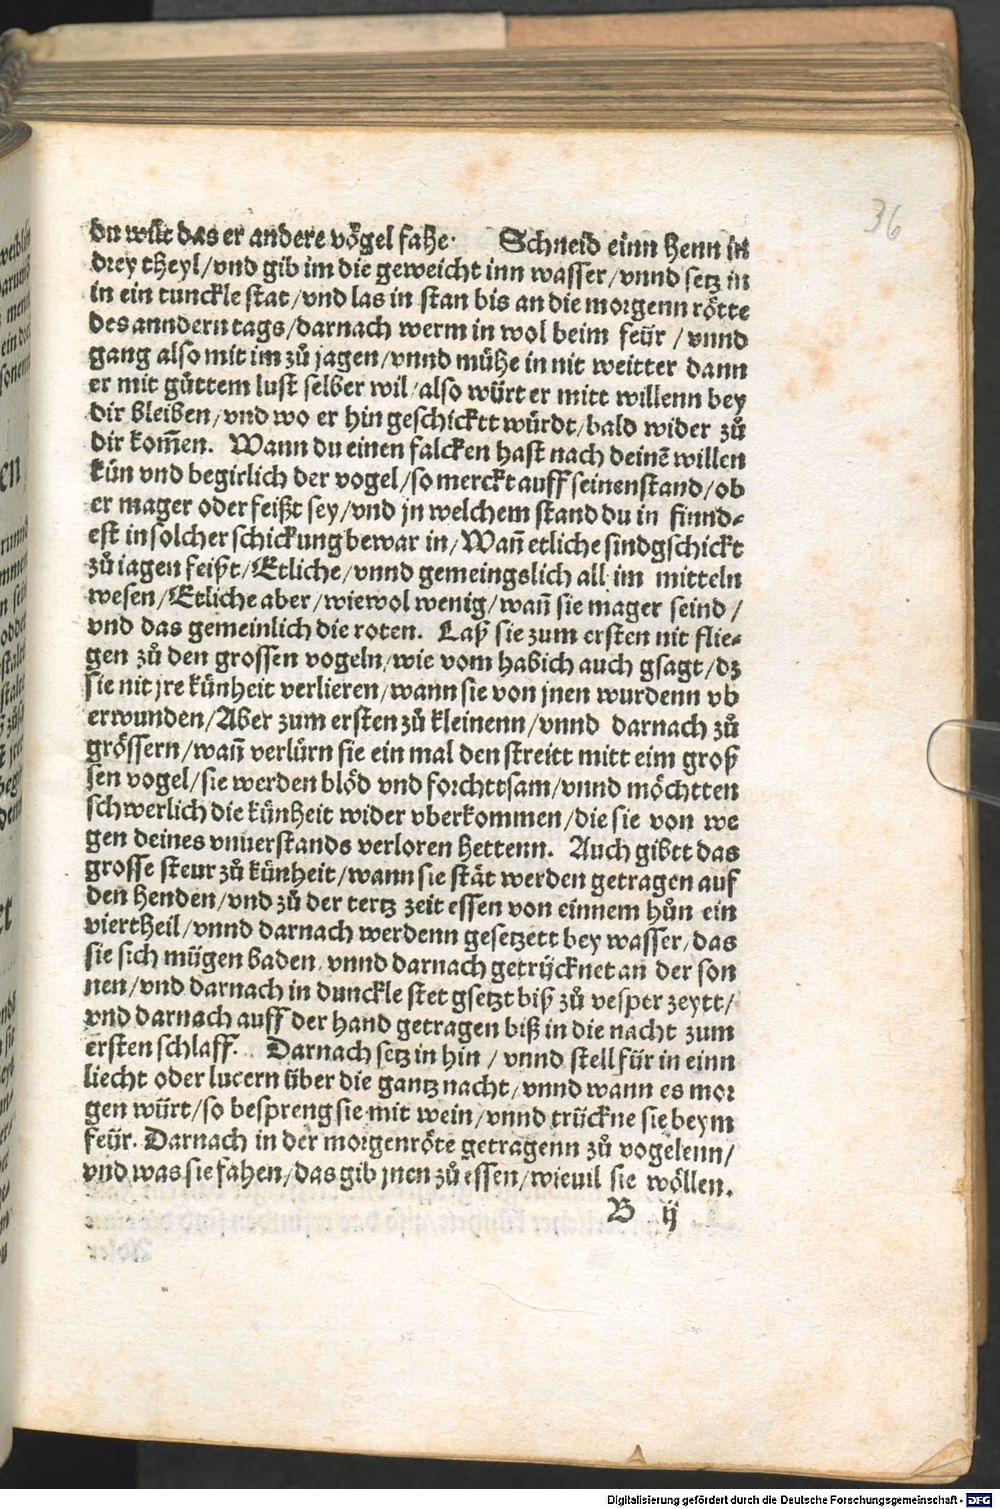 36
du wilt das er andere vögel fahe. Schneid einn henn in
drey theyl/vnd gib im die geweicht inn wasser/vnnd setz in
in ein tunckle stat/vnd las in stan bis an die morgenn rötte
des anndern tags/darnach werm in wol beim feür / vnnd
gang also mit im zů jagen/vnnd mühe in nit weitter dann
er mit gůttem lust selber wil/also würt er mitt willenn bey
dir bleiben/vnd wo er hin geschicktt würdt/bald wider zů
dir kom̄en. Wann du einen falcken hast nach deinē willen
kün vnd begirlich der vogel/so merckt auff seinen stand/ob
er mager oder feißt sey/vnd jn welchem stand du in finnd⸗
est in solcher schickung bewar in/Wan̄ etliche sind gschickt
zů iagen feißt/Etliche/vnnd gemeingslich all im mitteln
wesen/Etliche aber/wiewol wenig/wan̄ sie mager seind /
vnd das gemeinlich die roten. Laß sie zum ersten nit flie⸗
gen zů den grossen vogeln/wie vom habich auch gsagt/dz
sie nit jre künheit verlieren/wann sie von jnen wurdenn vb
erwunden/Aber zum ersten zů kleinenn/vnnd darnach zů
grössern/wan̄ verlürn sie ein mal den streitt mitt eim groß
sen vogel/sie werden blöd vnd forchttsam/vnnd möchtten
schwerlich die künheit wider vberkommen/die sie von we
gen deines vnuerstands verloren hettenn. Auch gibtt das
grosse steur zů künheit/wann sie stät werden getragen auf
den henden/vnd zů der tertz zeit essen von einnem hůn ein
viertheil/vnnd darnach werdenn gesetzett bey wasser/das
sie sich mügen baden/vnnd darnach getrücknet an der son
nen/vnd darnach in dunckle stet gsetzt biß zů vesper zeytt/
vnd darnach auff der hand getragen biß in die nacht zum
ersten schlaff. Darnach setz in hin / vnnd stell für in einn
liecht oder lucern über die gantz nacht/vnnd wann es mor
gen würt/so bespreng sie mit wein/vnnd trückne sie beym
feür. Darnach in der morgenröte getragenn zů vogelenn/
vnd was sie fahen/das gib jnen zů essen/wieuil sie wöllen.
B ij
Digitalisierung gefördert durch die Deutsche Forschungsgemeinschaft - DFG